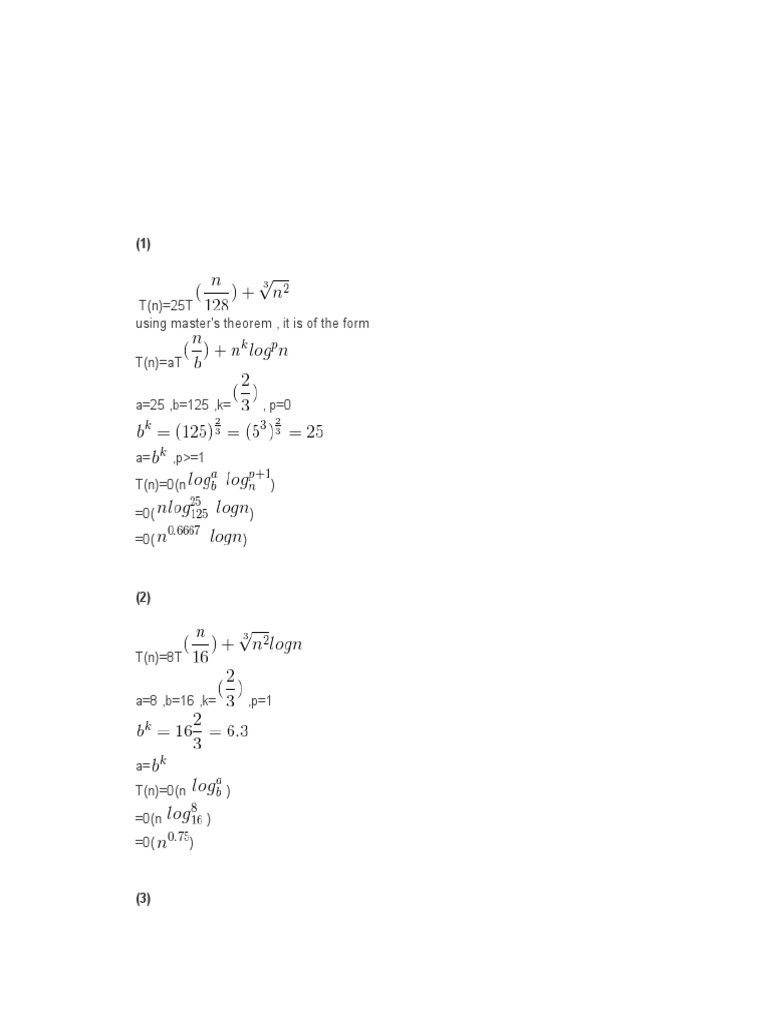 (1)
T(n)=25T(\frac{n}{128}) + \sqrt[3]{n^2}
using master's theorem , it is of the form
T(n)=aT(\frac{n}{b}) + n^k log^p n
a=25 ,b=125 ,k=(\frac{2}{3}) , p=0
b^k = (125)^{\frac{2}{3}} = (5^3)^{\frac{2}{3}} = 25
a=b^k ,p>=1
T(n)=0(n log_b^a log_n^{p+1})
=0(nlog_{125}^{25} logn)
=0(n^{0.6667} logn)
(2)
T(n)=8T(\frac{n}{16}) + \sqrt[3]{n^2}logn
a=8 ,b=16 ,k=(\frac{2}{3}) ,p=1
b^k = 16\frac{2}{3} = 6.3
a=b^k
T(n)=0(n log_b^a )
=0(n log_{16}^8 )
=0(n^{0.75})
(3)